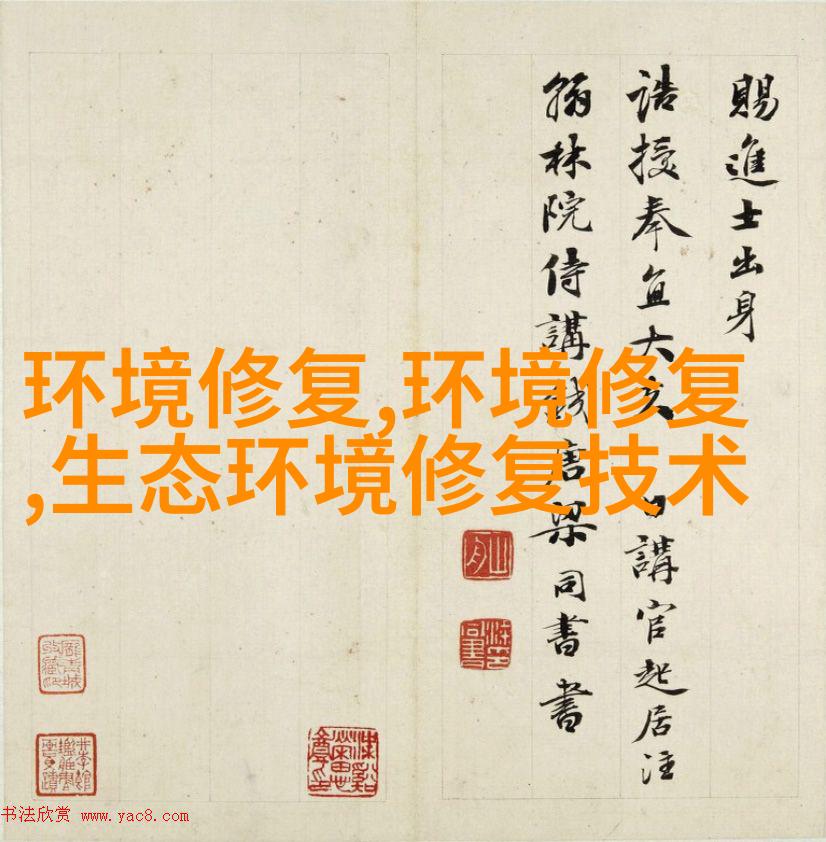 賜進士出身
誥授奉直大夫日講官起居注
翰林院侍講錢唐梁同書書
环境修复,环境修复
,生态环境修复技术
书法欣赏 www.yac8.com